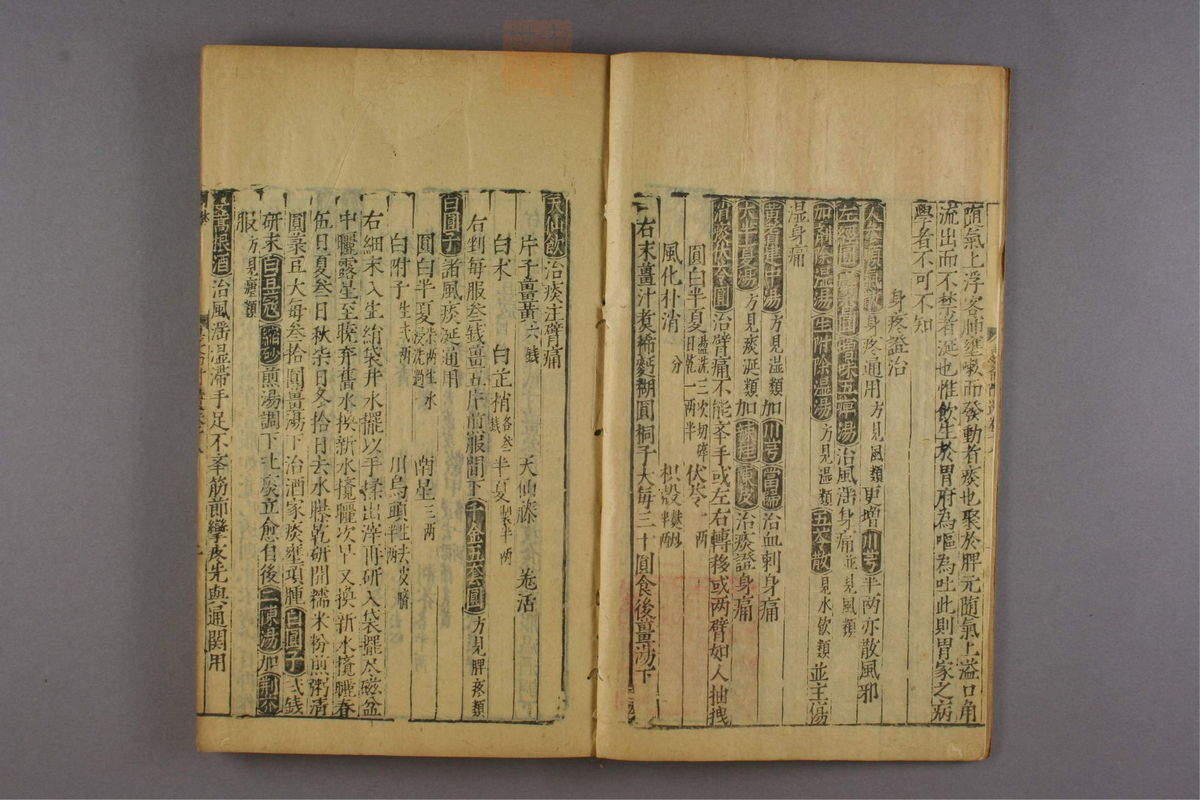 隨氣上浮客肺壅嗽而發動者痰也聚於脾元随氣上溢口角
流出而不禁者涎也惟飲生於胃府為嘔為吐此則胃家之病
學者不可不知
身疼證治
人參順氣散身疼通用方見風類更增川芎半兩亦散風邪
左經圓 當味五痺湯治風濕身痛並見風類
加劑除溫湯生附除溫湯方見溫類五苓散見水飲類並主傷
湿身痛
黃耆建中湯方見類加川芎當歸治血剌身痛
大半夏湯方見痰涎類加辣桂陳皮治痰證身痛
消痰茯苓圓治臂痛不能举手或左右轉移或两臂如人抽拽
圓白半夏三次切碎日乾一两半 伏苓一两 枳殼半两
風化朴消一分
右末薑汁煮稀麪糊圓桐子大每三十圓食後薑湯下
天仙飲治痰注臂痛
片子薑黃六錢 天仙藤 羗活
白术 白芷梢各叁錢 半夏製半两
右剉每服叁錢薑五片煎服間下千金五套圓方見脾疼類
白圓子諸風痰涎通用
圓白半夏柒两生水浸洗過 南星三两
白附子生弍两 川烏頭生去皮臍半两
右細末入生絹袋井水擺以手揉出滓再研入袋擺尽磁盆
中曬露星至曉弃舊水換新水攪曬次早又換新水攪曬春
伍日夏叁日秋柒日冬拾日去水曝乾研開糯米粉煎粥清
圓菉豆大每叁拾圓薑湯下治酒家痰壅項腫白圓子弍錢
研末白豆蔻縮砂煎湯調下吐痰立愈自後二陳湯加制分
服方見瘧類
茵蒿根酒治風濕濕滯手足不举筋節攣皮先與通関用